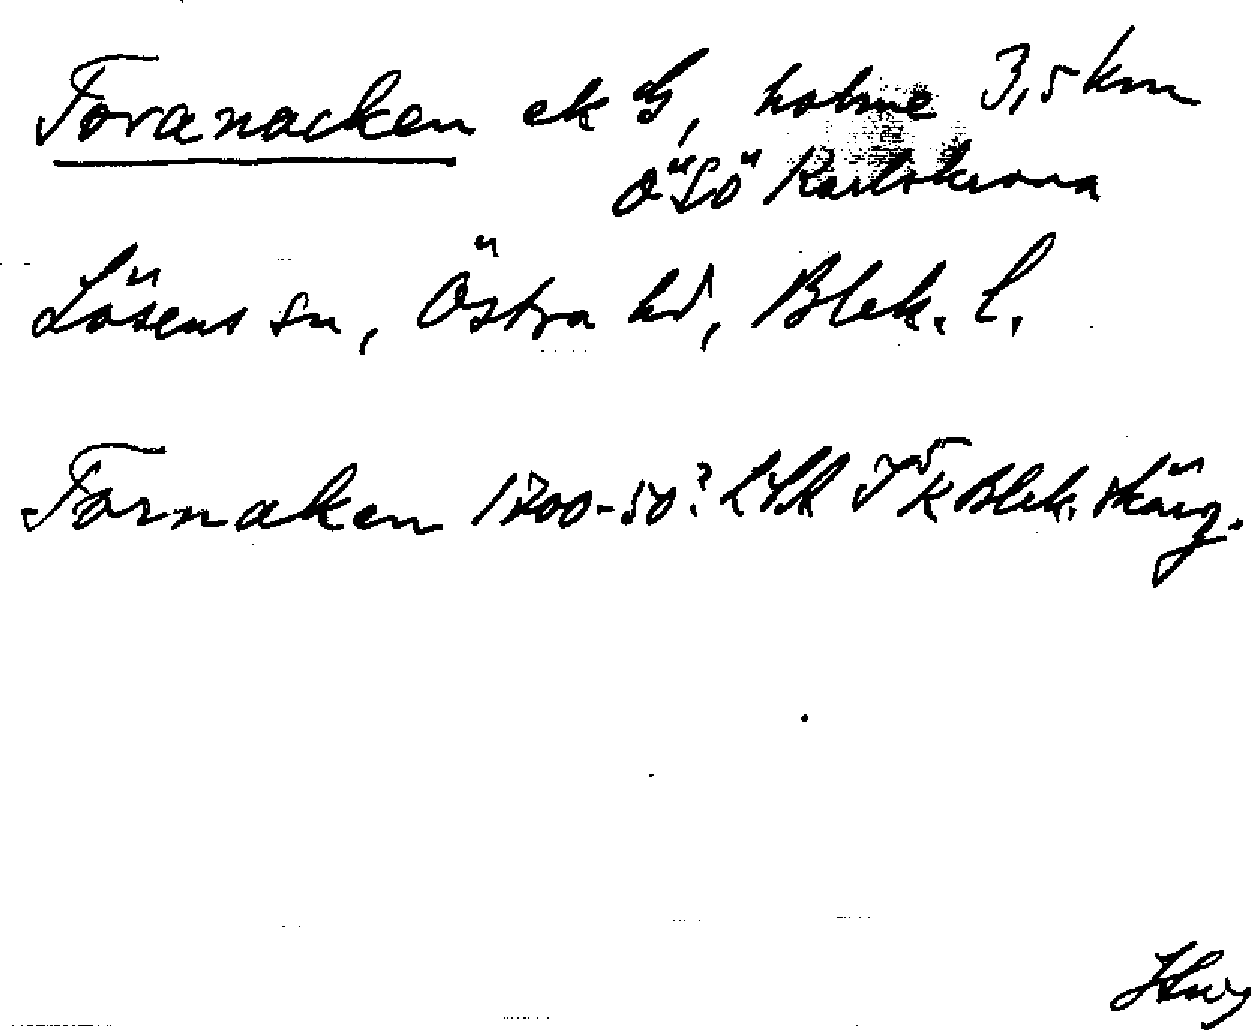 Toranacken ek G, holme 3,5 km
ÖSÖ Karlskrona
Lösens sn, Östra hd, Blek. l.
Tornaken 1700-50? Blek. skärg.